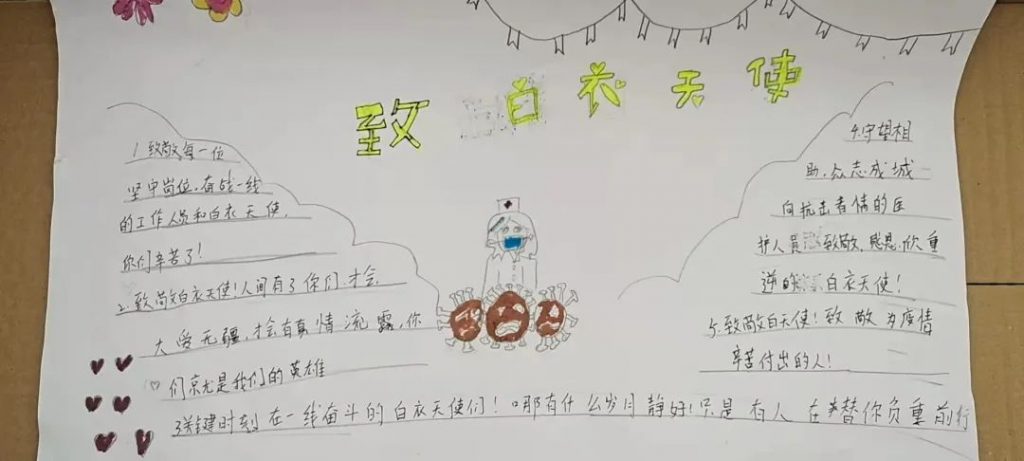 致白衣天使
1.致敬每一位
坚守岗位,奋战一线
的工作人员和白衣天使,
你们辛苦了!
2.致敬白衣天使!人间有了你们,才会
大爱无疆,才会有真情流露,你
们就是我们的英雄
3关键时刻在一线奋斗的白衣天使们!哪有什么岁月静好!只是有人在替你负重前行
4.守望相
助,众志成城
向抗击着情的医
护人员致敬,感是
逆的白衣天使!
5.致敬白天使!致敬为疫情
辛苦付出的人!